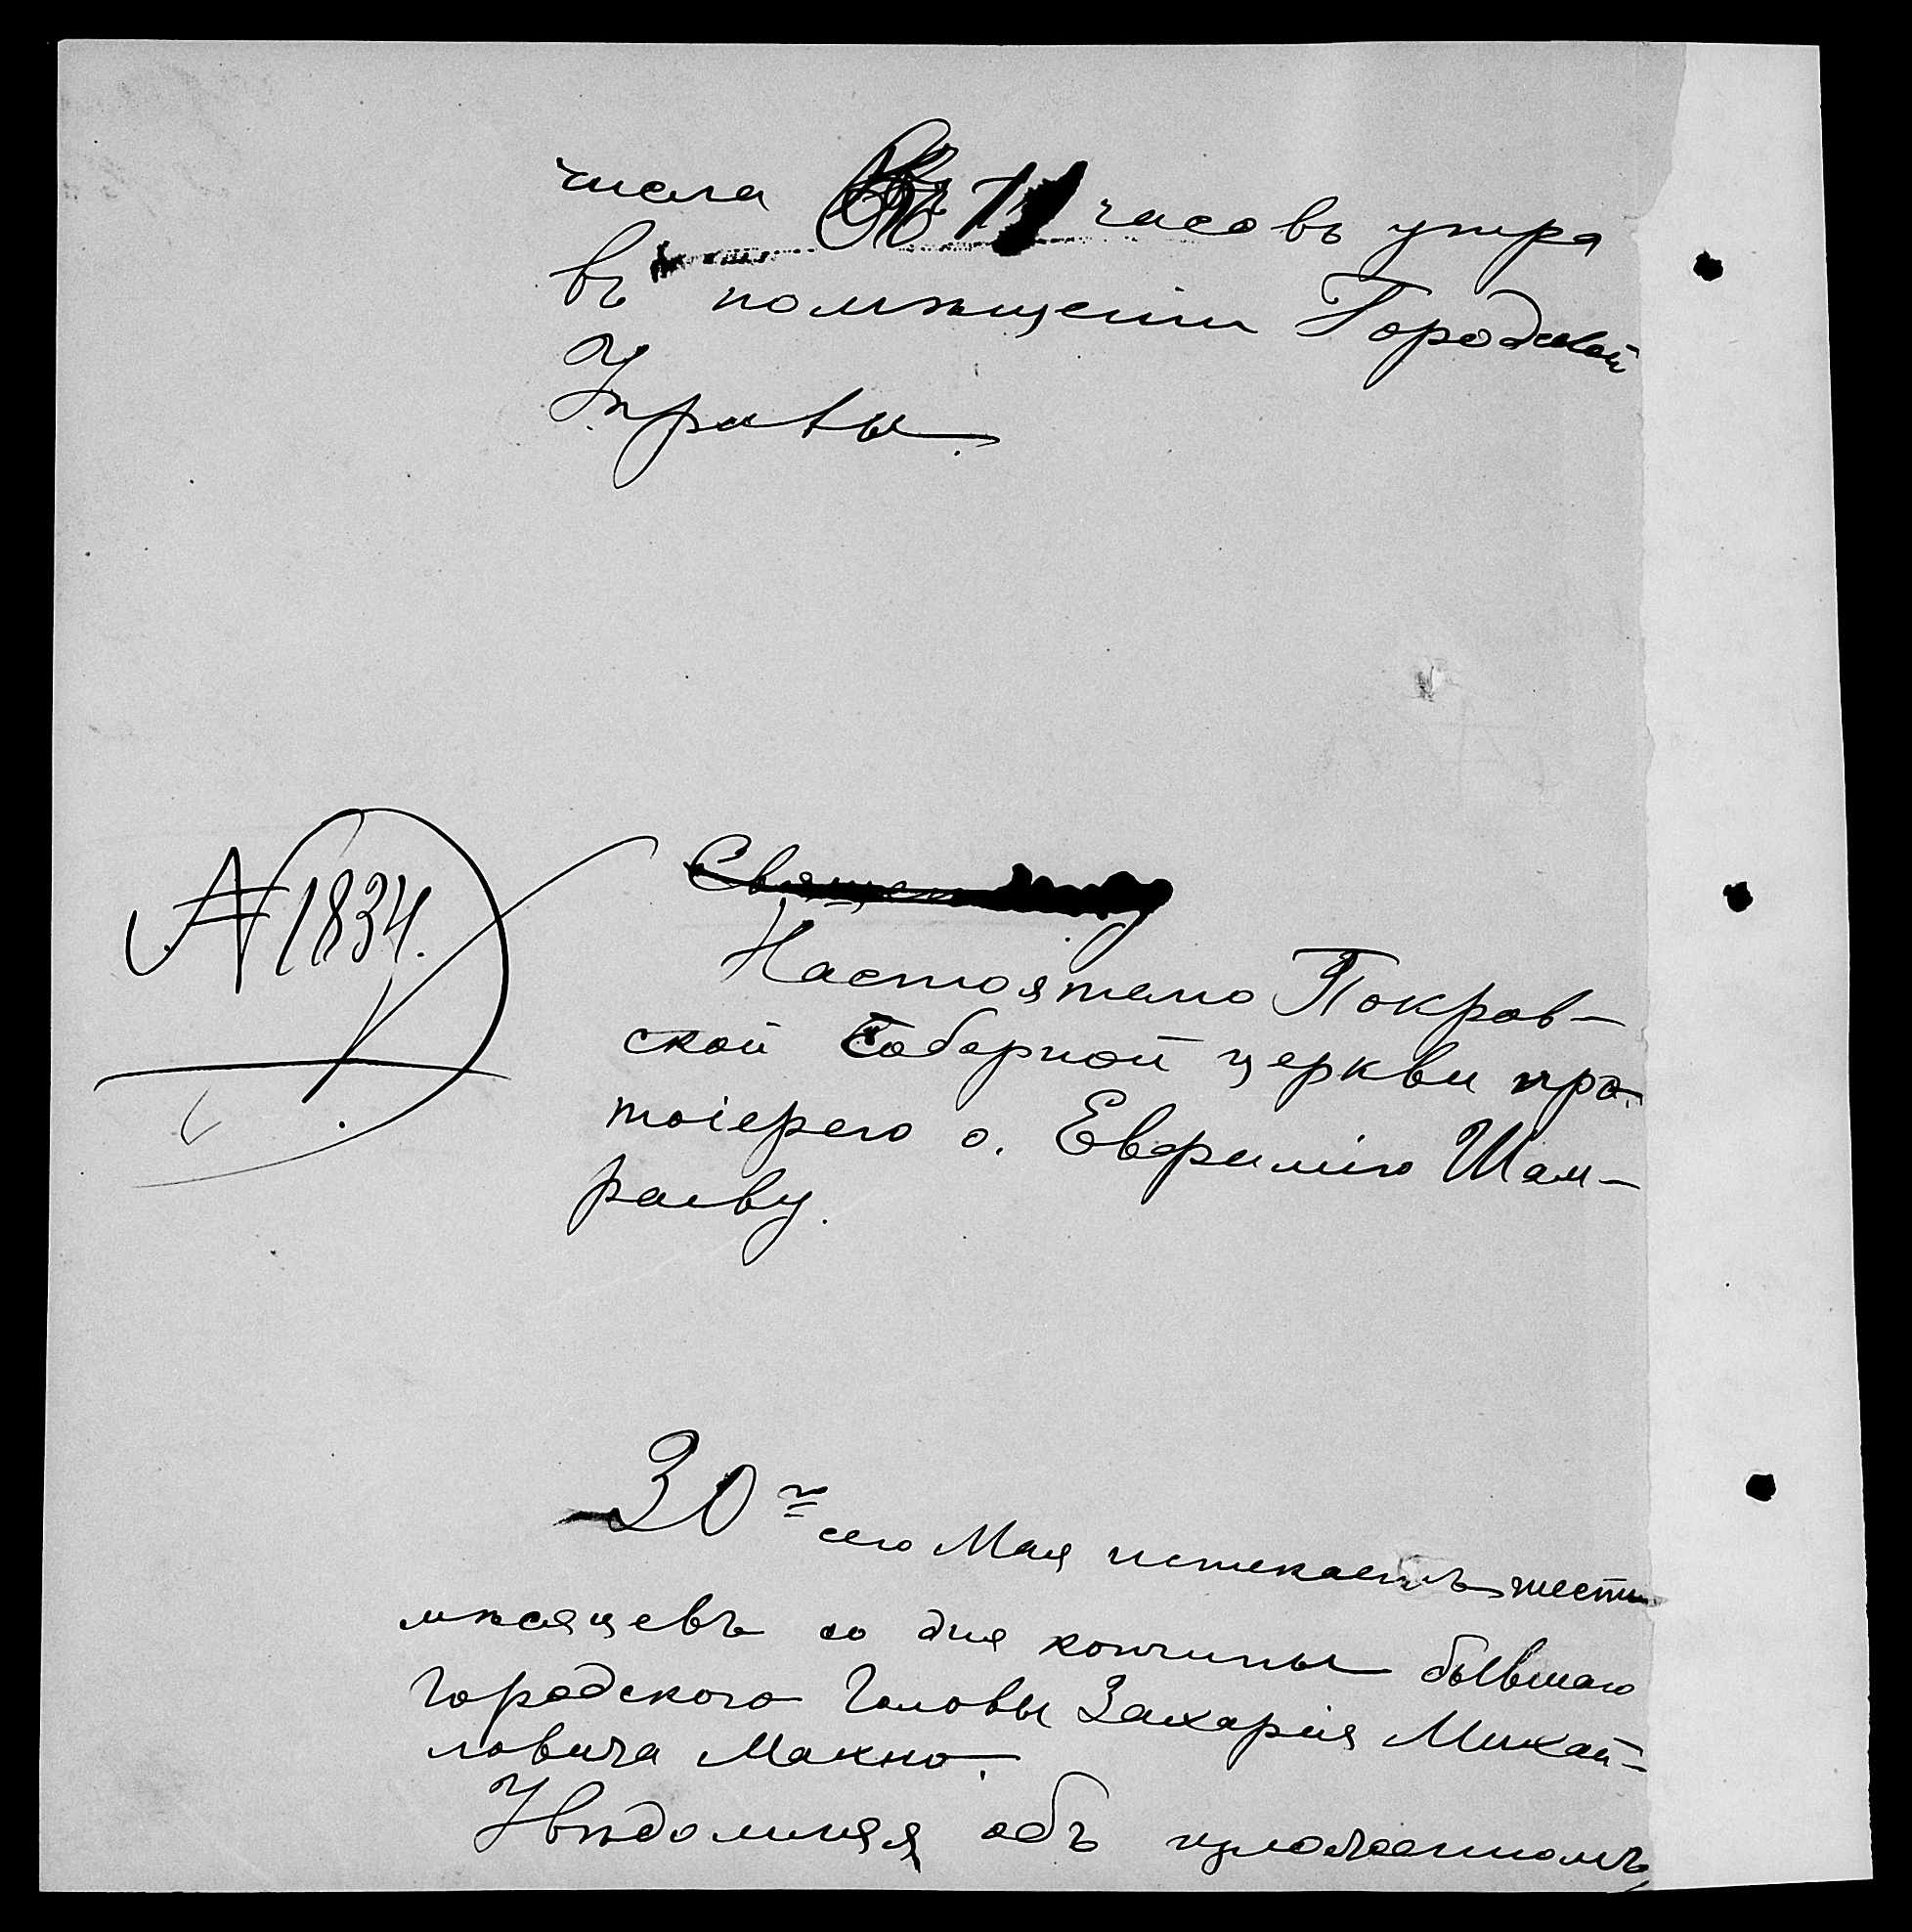 числа въ 11 часовъ утра
въ помѣщеніи Городской
Управы.
№ 1834.
Священнику
Настоятелю Покров-
ской Соборной церкви про-
тоіерею о. Евфимію Шам-
раеву.
30го сего Мая истекаетъ шесть
мѣсяцевъ со дня кончины бывшаго
Городского Головы Захарія Михай-
ловича Махно.
Увѣдомляя объ изложенномъ,